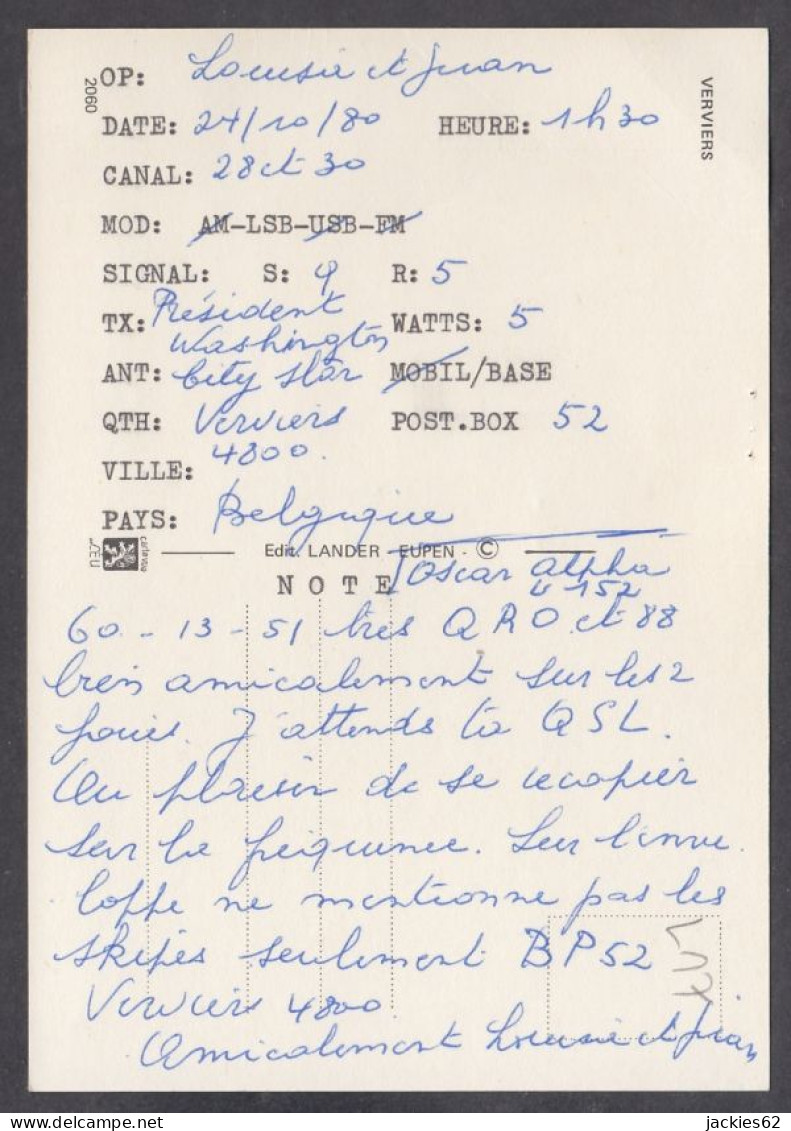 OP: Louisa et Juan
DATE: 24/10/80 HEURE: 1h30
CANAL: 28 et 30
MOD: AM-LSB-USB-FM
SIGNAL: S: 9 R: 5
TX: Président
Washington WATTS: 5
ANT: City Star MOBIL/BASE
QTH: Verviers POST.BOX 52
VILLE: 4800.
PAYS: Belgique
Edit. LANDER - EUPEN - ©
NOTE Oscar Alpha
152
60 - 13 - 51 très QRO et 88
bien amicalement sur les 2
joues. J'attends ta QSL.
Au plaisir de se recopier
sur la fréquence. Sur l'enve
loppe ne mentionne pas les
skipés seulement BP52
Verviers 4800.
Amicalement Louisa et Juan
2060
VERVIERS
cartevue
jackies62